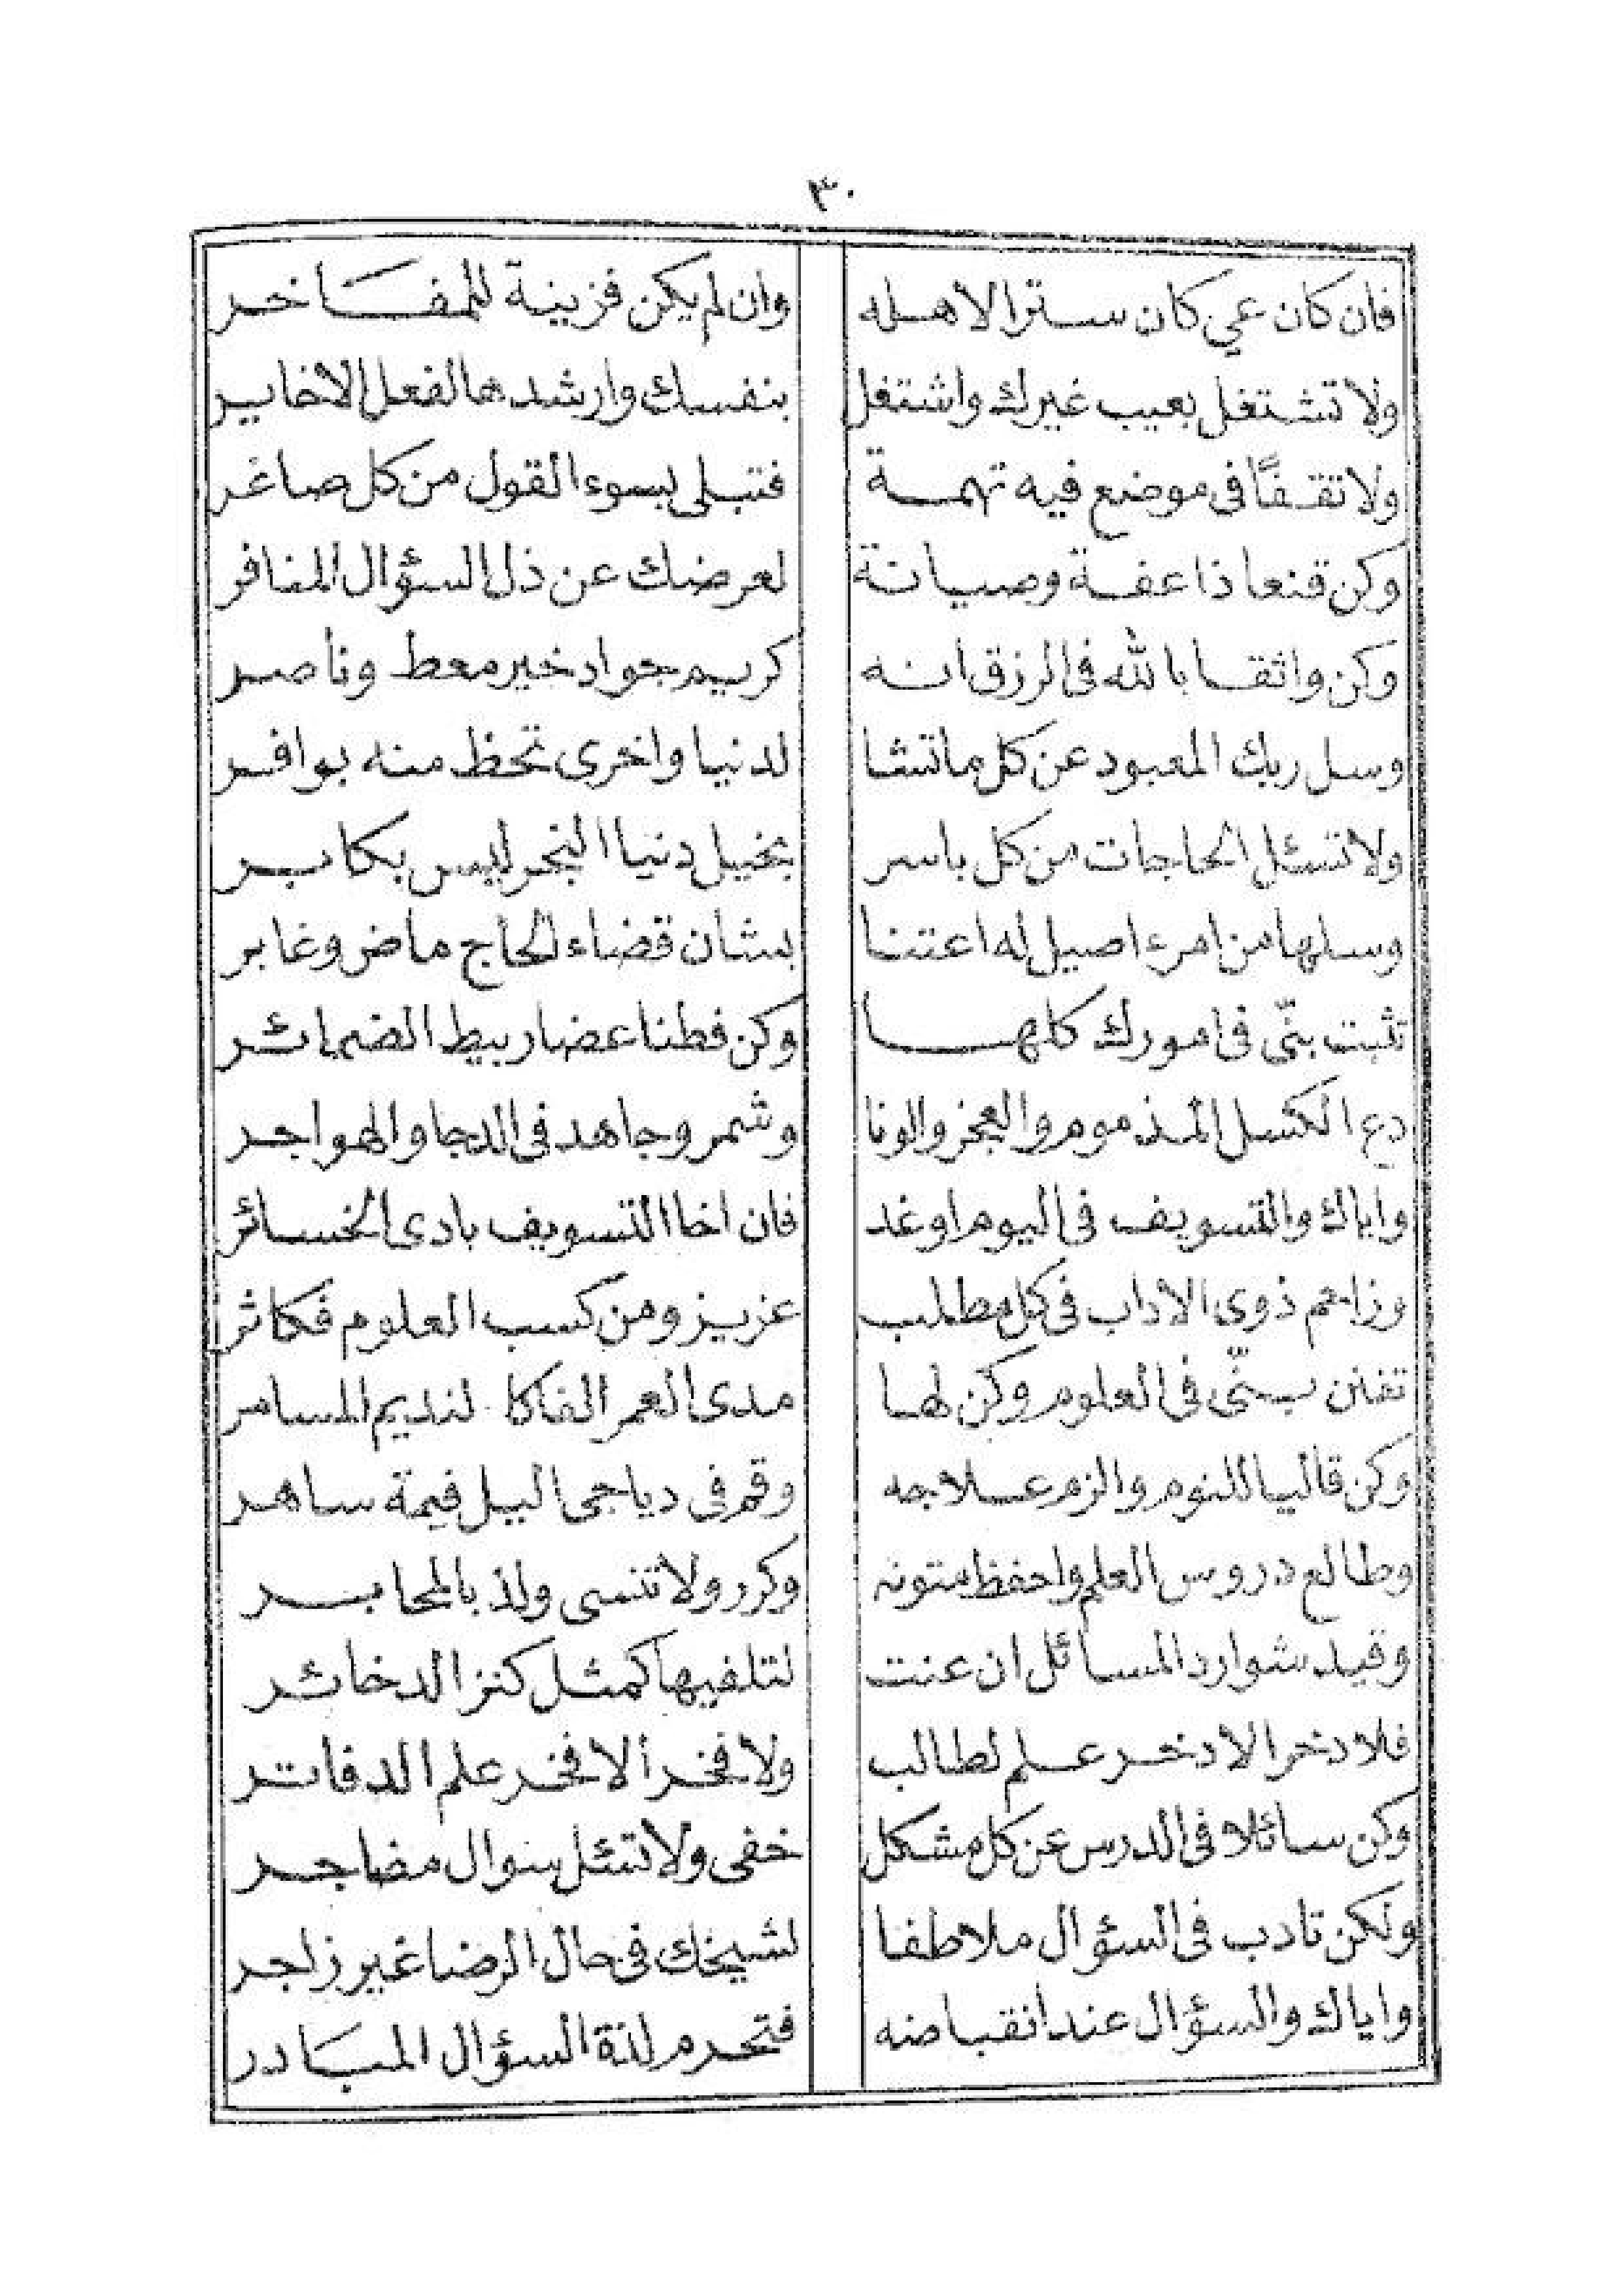 ٣٠
فان كان عي كان سترا لاهله وان لم يكن فزينة للمفاخر
ولا تشتغل بعيب غيرك واشتغل بنفسك وارشدهما لفعل الاخاير
ولا تقفًا فى موضع فيه تهمة فتبلى بسوء القول من كل صاغر
وكن قنعا ذا عفة وصيانة لعرضك عن ذل السؤال المنافر
وكن واثقا بالله فى الرزق انه كريم جواد خير معط وناصر
وسل ربك المعبود عن كل ما تشا لدنيا واخرى تحظ منه بوافر
ولا تسئل الحاجات من كل باسر بخيل دنيا النجر ليس بكابر
وسلها من امرء اصيل له اعتنا بشان قضاء الحاج ماض وغابر
تثبت بنيّ فى امورك كلها وكن فطنا عضا ربيط الضمائر
دع الكسل المذموم والعجز والونا وشمر وجاهد فى الدجا والهواجر
واياك والتسويف فى اليوم او غد فان اخا التسويف بادى الخسائر
وزاحم ذوى الاداب فى كل مطلب عزيز ومن كسب العلوم فكاثر
تفنن بنيّ فى العلوم وكن لها مدى العمر الفا كالنديم المسامر
وكن قاليا للنوم والزم علاجه وقم فى دياجى اليل قيمة ساهر
وطالع دروس العلم واحفظ متونه وكرر ولا تنسى ولذ بالمحابر
وقيد شوارد المسائل ان عنت لتلفيها كمثل كنز الدخائر
فلا دخر الا دخر علم لطالب ولا فخر الا فخر علم الدفاتر
وكن سائلا فى الدرس عن كل مشكل خفى ولا تسئل سوال مضاجر
ولكن تادب فى السؤال ملاطفا لشيخك فى حال الرضا غير زاجر
واياك والسؤال عند انقباضه فتحرم لذة السؤال المبادر